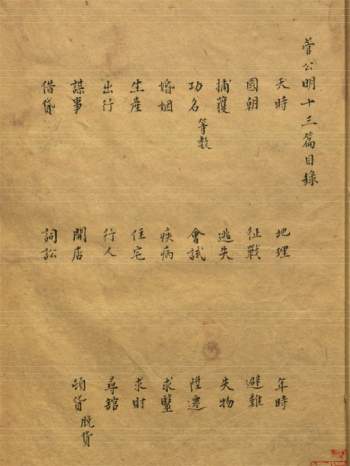 菅公明十三篇目錄
天時 地理 年時
國朝 征戰 避難
捕獲 逃失 失物
功名等數 會試 陞遷
婚姻 疾病 求醫
生產 住宅 求財
出行 行人 尋館
謀事 開店 頓貨脫貨
借貸 詞訟